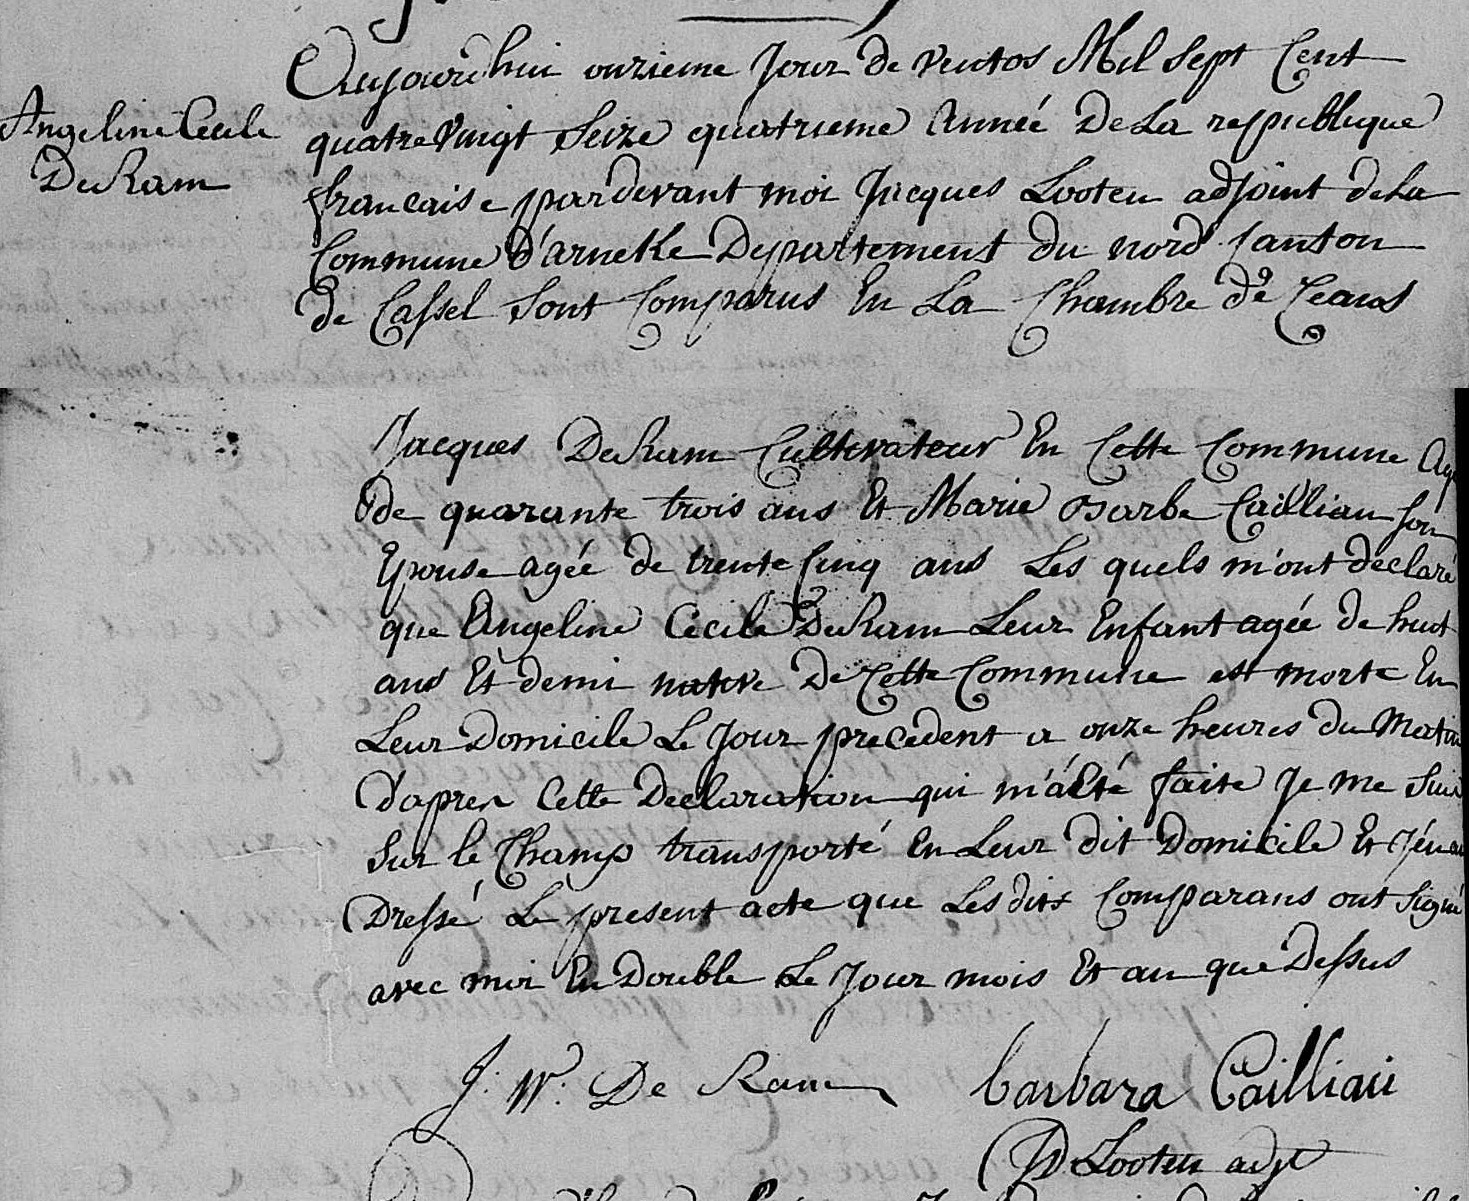 Angeline Cecile
DeRam
Aujourd'hui onzieme Jour de Ventos Mil Sept Cent
quatre Vingt Seize quatrieme Année De La republique
francaise pardevant moi Jacques Looten adjoint de La
Commune d'arneke Departement du nord Canton
de Cassel Sont Comparus En La Chambre de Ceans
Jacques DeRam Cultivateur En Cette Commune Agé
de quarante trois ans Et Marie Barbe Cailliau Son
Epouse agée de trente Cinq ans Les quels m'ont declaré
que Angeline Cecile DeRam Leur Enfant agée de huit
ans Et demi native De Cette Commune est morte En
Leur Domicile Le Jour precedent a onze heures du Matin
d'apres Cette Declaration qui m'a Eté faite Je me Suis
Sur le Champ transporté En Leur dit Domicile Et J'en ai
Dressé Le present acte que Les dits Comparans ont Signé
avec moi En Double Le Jour mois Et an que Dessus
J. W. De Ram barbara Cailliau
JD Looten adjt